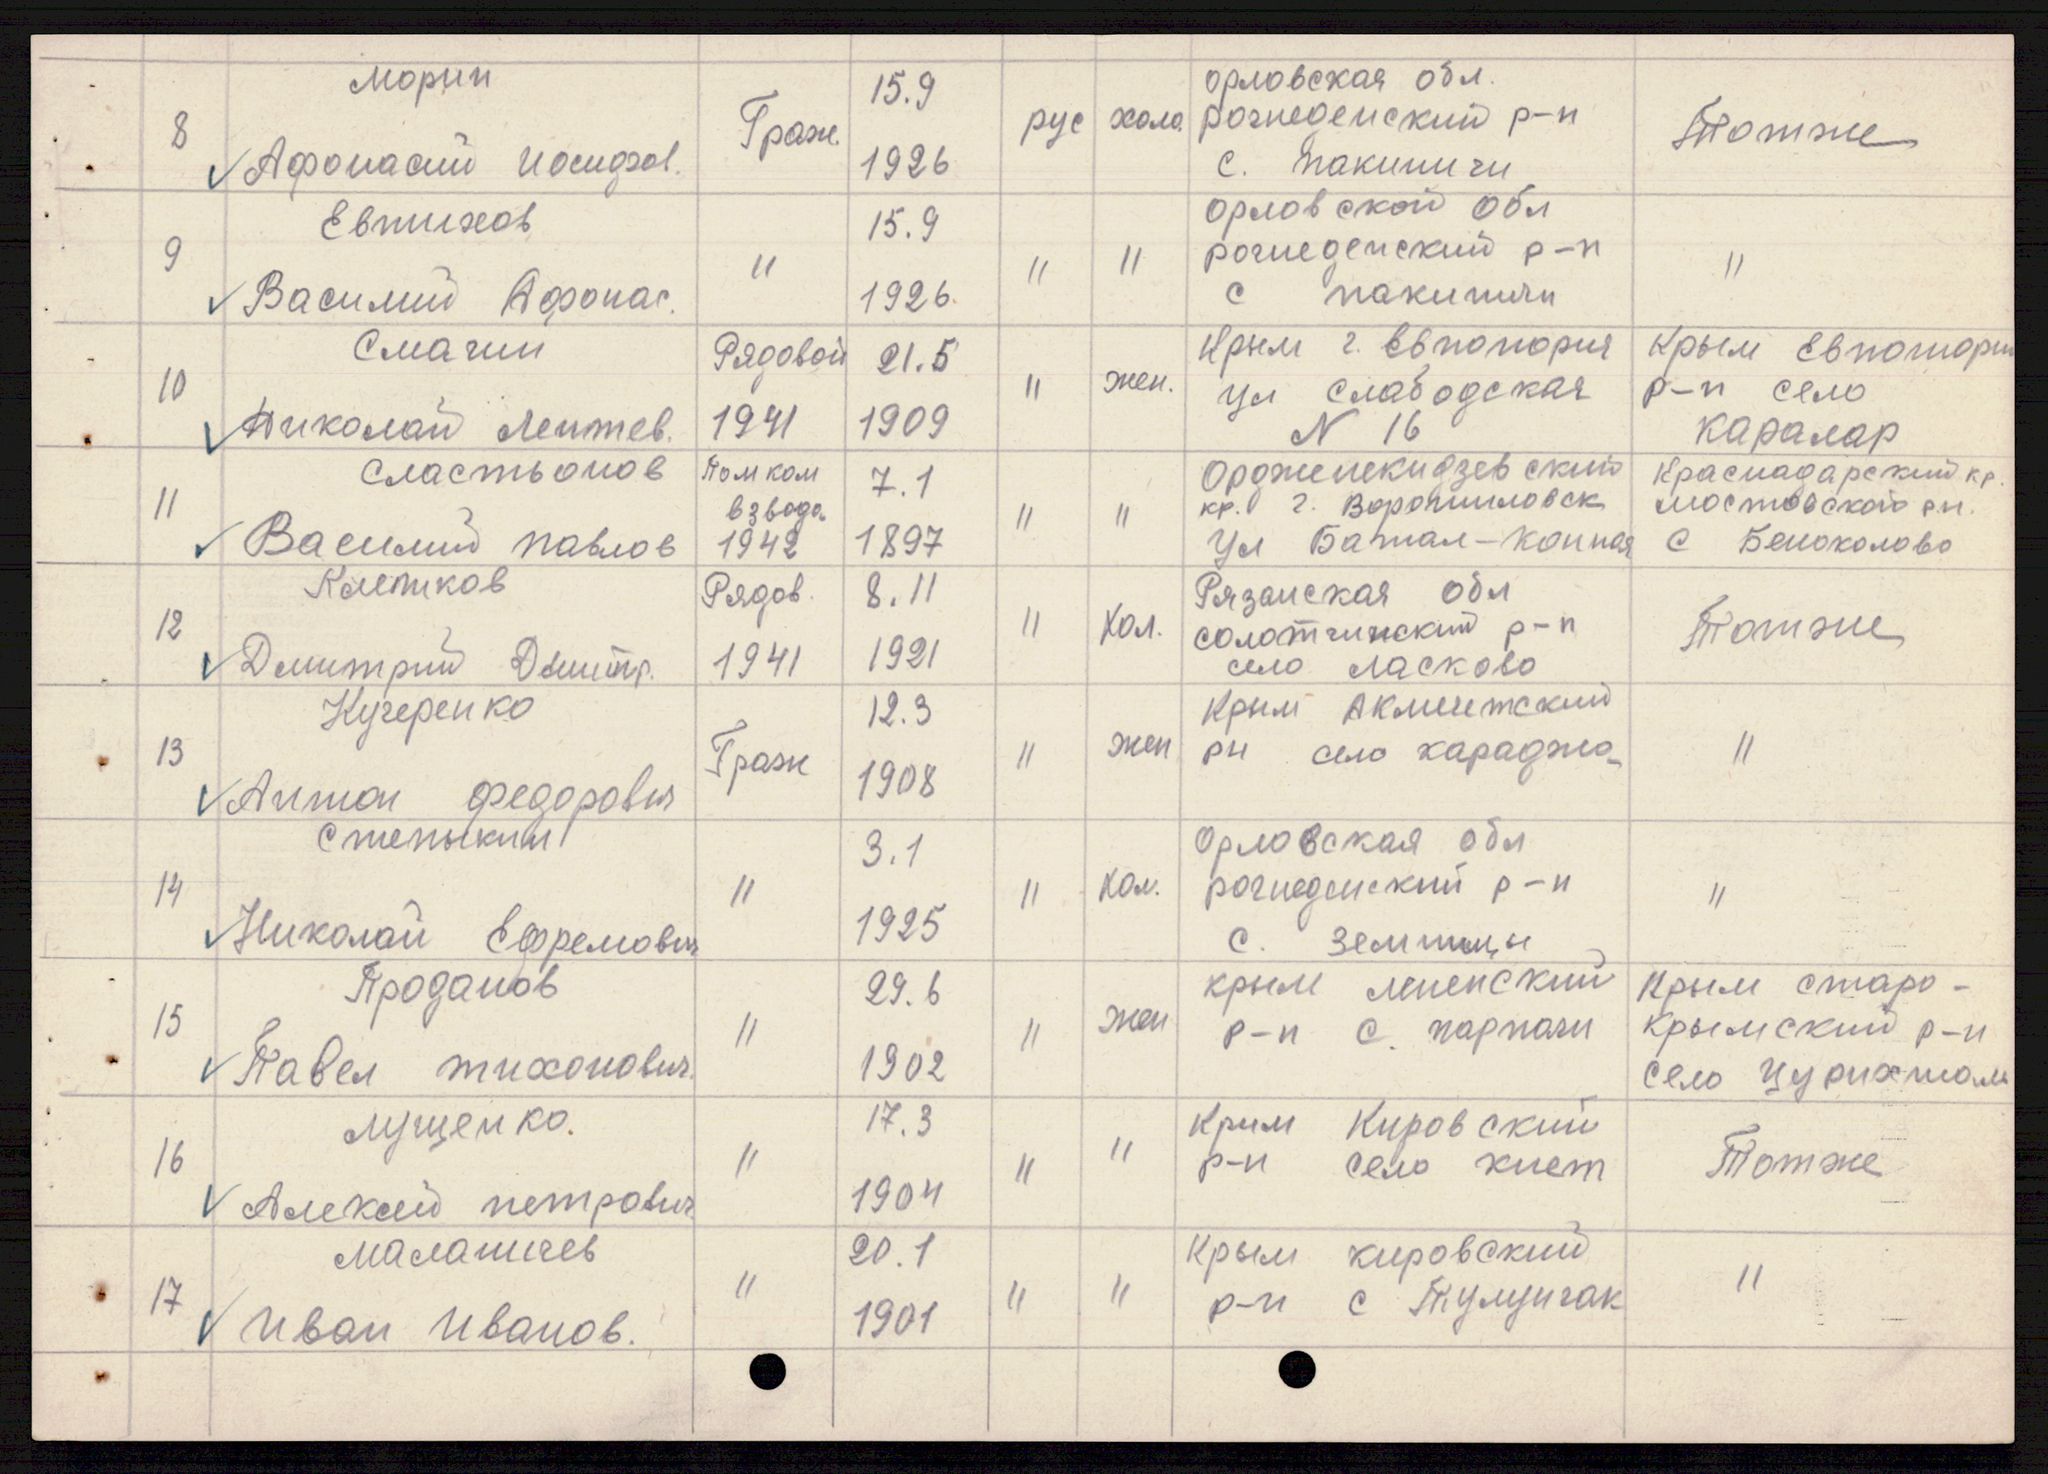 8 Морин Афонасий иосифов. Граж. 15.9 1926 рус холо. орловская обл. рогнеденский р-н с. пакиничи Тотже
9 Евтихов Василий Афонас. " 15.9 1926 " " орловской обл рогнеденский р-н с пакиничи "
10 Смагин Николай Лентев. Рядовой 1941 21.5 1909 " жен. Крым г. Евпатория ул слабодская N 16 Крым Евпатори р-н село каралар
11 Сластьонов Василий павлов Пом ком взвода 1942 7.1 1897 " " Орджонекидзевский кр. г. Ворошиловск ул Батал-Конная Краснадарский кр. мостовской р.н. с Беноколово
12 Дмитрий Дмитр. Рядов. 1941 8.11 1921 " Хол. Рязанская обл солотчинский р-н село ласково Тотже
13 Кучеренко Антон федорович Граж 12.3 1908 " жен Крым Акмечетский рн село караджа "
14 Степыкин Николай Ефремович " 3.1 1925 " Хол. Орловская обл рогнеденский р-н с. земтицы "
15 Проданов Павел тихонович. " 29.6 1902 " жен крым ленинский р-н с. парпачи Крым старо-крымский р-н село цурихталь
16 лущенко. Алексей петрович " 17.3 1904 " " Крим Кировский р-н село киет Тотже
17 Малашичев Иван Иванов. " 20.1 1901 " " Крым кировский р-н с Тулунчак "